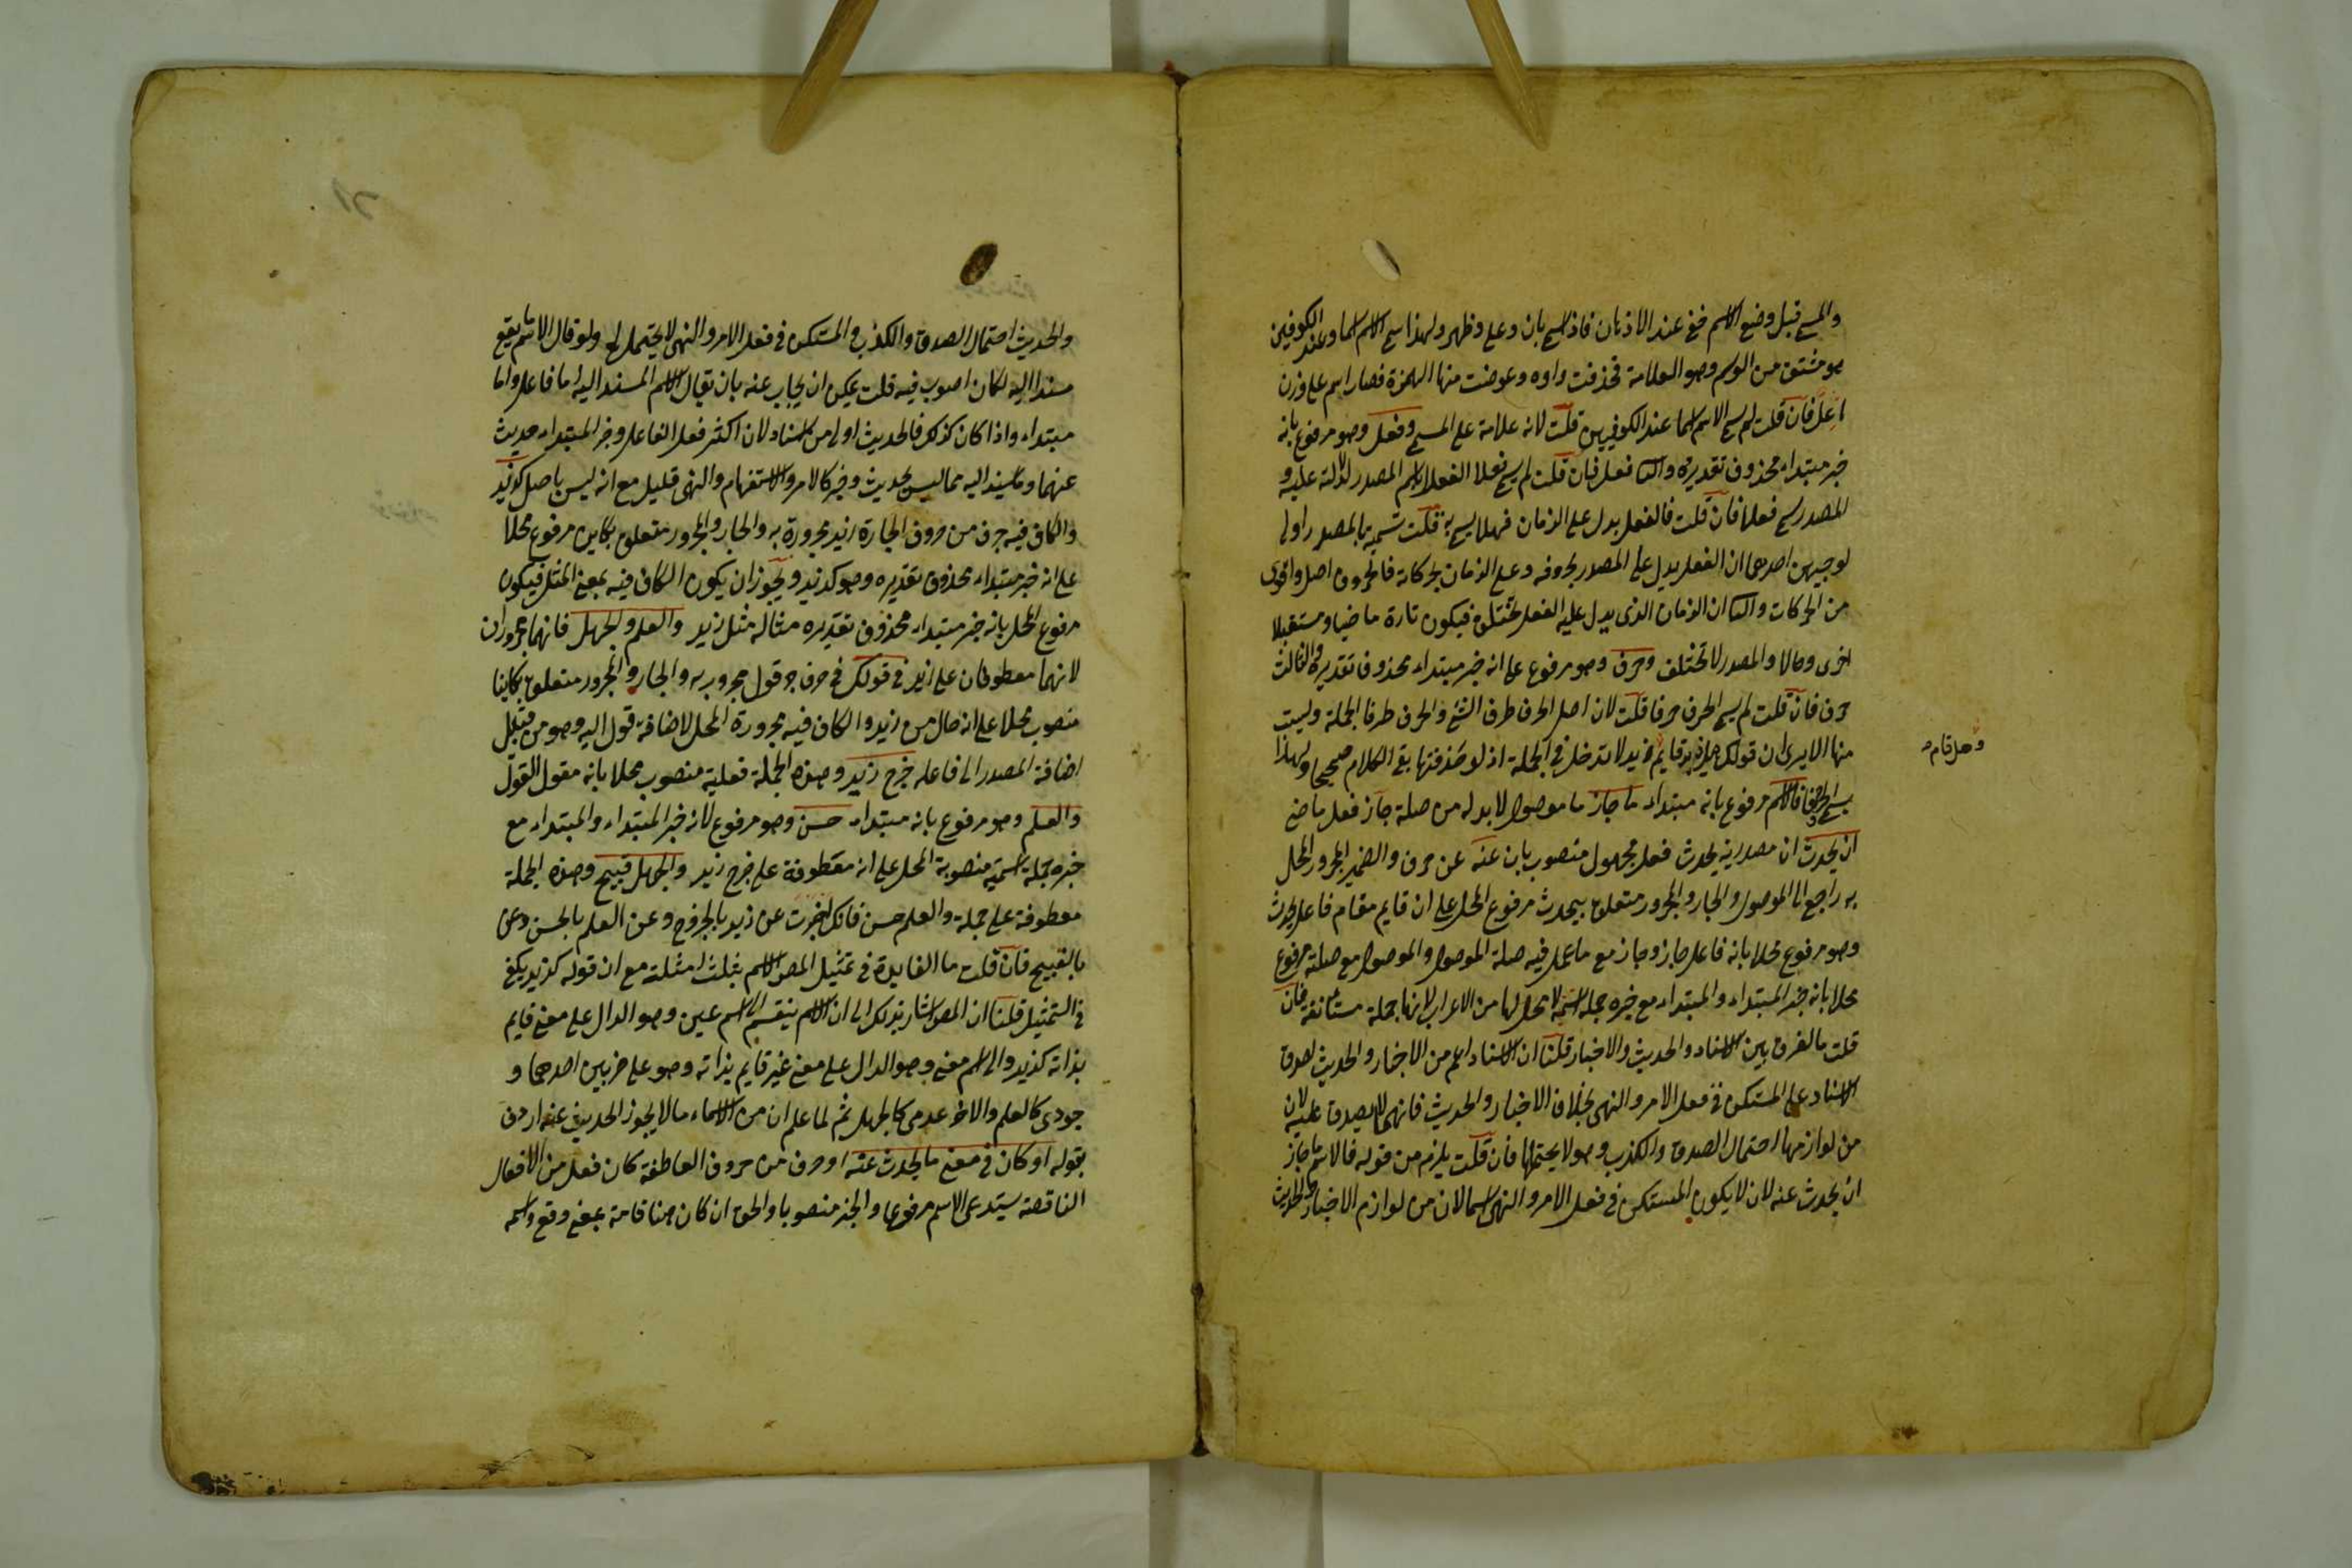 والمسمى قبل وضع الاسم خفي عند الاذهان فاذا سمي بان وعلى وظهر ولهذا سمي الاسم اسما وعند الكوفيين
هو مشتق من الوسم وهو العلامة فحذفت واوه وعوضت منها الهمزة فصار اسم على وزن
اعل فان قلت لم سمي الاسم اسما عند الكوفيين قلت لانه علامة على المسمى وفعل وهو مرفوع بانه
خبر مبتداء محذوف تقديره والثاني فعل فان قلت لم سمي فعلا الفعل اسم المصدر لدلالته عليه و
المصدر سمي فعلا فان قلت فالفعل يدل على الزمان فهلا يسمى به قلت تسميته بالمصدر اولى
لوجهين احدهما ان الفعل يدل على المصدر بحروفه وعلى الزمان بحركاته فالحروف اصل واقوى
من الحركات والثاني ان الزمان الذى يدل عليه الفعل مختلف فيكون تارة ماضيا ومستقبلا
اخرى وحالا والمصدر لا تختلف وحرف وهو مرفوع على انه خبر مبتداء محذوف تقديره والثالث
حرف فان قلت لم سمي الحرف حرفا قلت لان اصل الحرف طرف الشئ والحرف طرف الجملة وليست
منها الا يرى ان قولك هل زيد قايم زيد لا تدخل في الجملة اذ لو حذفتها بقى الكلام صحيحا ولهذا
وهل قام
سمي الحرف حرفا فالاسم مرفوع بانه مبتداء ما جاز ما موصول لا بد له من صلة جاز فعل ماضي
ان يحدث ان مصدرية يحدث فعل مجهول منصوب بان عنه عن حرف والضمير المجرور المحل
به راجع الى الموصول والجار والمجرور متعلق بيحدث مرفوع المحل على ان قايم مقام فاعل يحدث
وهو مرفوع محلا بانه فاعل جاز وجاز مع ما عمل فيه صلة الموصول والموصول مع صلته مرفوع
محلا بانه خبر المبتداء والمبتداء مع خبره جملة اسمية لا محل لها من الاعراب لانها جملة مستانفة فان
قلت ما الفرق بين الاسناد والحديث والاخبار قلنا ان الاسناد اعم من الاخبار والحديث لصدق
الاسناد على المستكن في فعل الامر والنهى بخلاف الاخبار والحديث فانهما لا يصدق عليه لان
من لوازمها احتمال الصدق والكذب وهو لا يحتملها فان قلت يلزم من قوله فالاسم ما جاز
ان يحدث عنه لان لا يكون المستكن في فعل الامر والنهى اسما لان من لوازم الاخبار والحديث
والحديث احتمال الصدق والكذب والمستكن في فعل الامر والنهى لا يحتمل له ولو قال الاسم ما يقع
مسندا اليه لكان اصوب فيه قلت يمكن ان يجاب عنه بان يقال الاسم المسند اليه اما فاعل واما
مبتداء واذا كان كذلك فالحديث اولى من الاسناد لان اكثر فعل الفاعل وخبر المبتداء حديث
عنهما وما يسند اليه مما ليس بحديث وخبر كالامر والاستفهام والنهى قليل مع انه ليس باصل كزيد
والكاف فيه حرف من حروف الجارة زيد مجرورة به والجار والمجرور متعلق بكاين مرفوع محلا
على انه خبر مبتداء محذوف تقديره وهو كزيد ويجوز ان يكون الكاف فيه بمعنى المثل فيكون
مرفوع المحل بانه خبر مبتداء محذوف تقديره مثاله مثل زيد والعلم والجهل فانهما مجروران
لانهما معطوفان على زيد في قولك في حرف جر قول مجرور به والجار والمجرور متعلق بكاينا
منصوب محلا على انه حال من زيد والكاف فيه مجرورة المحل لاضافة قول اليه وهو من قبيل
اضافة المصدر الى فاعله خرج زيد وهذه الجملة فعلية منصوب محلا بانه مقول القول
والعلم وهو مرفوع بانه مبتداء حسن وهو مرفوع لانه خبر المبتداء والمبتداء مع
خبره جملة اسمية منصوبة المحل على انه معطوفة على خرج زيد والجهل قبيح وهذه الجملة
معطوفة على جملة والعلم حسن فانك اخبرت عن زيد بالخروج وعن العلم بالحسن وعن
بالقبيح فان قلت ما الفايدة في تمثيل المص الاسم بثلث امثلة مع ان قوله كزيد يكفى
في التمثيل قلنا ان المص اشار بذلك الى ان الاسم ينقسم الى اسم عين وهو الدال على معنى قايم
بذاته كزيد والى اسم معنى وهو الدال على معنى غير قايم بذاته وهو على ضربين احدهما و
جودى كالعلم والاخر عدمى كالجهل ثم لما علم ان من الاسماء ما لا يجوز الحديث عنه اردف
بقوله او كان في معنى ما يحدث عنه او حرف من حروف العاطفة كان فعل من الافعال
الناقصة يستدعى الاسم مرفوعا والخبر منصوبا والحق ان كان هنا تامة بمعنى وقع واسمه